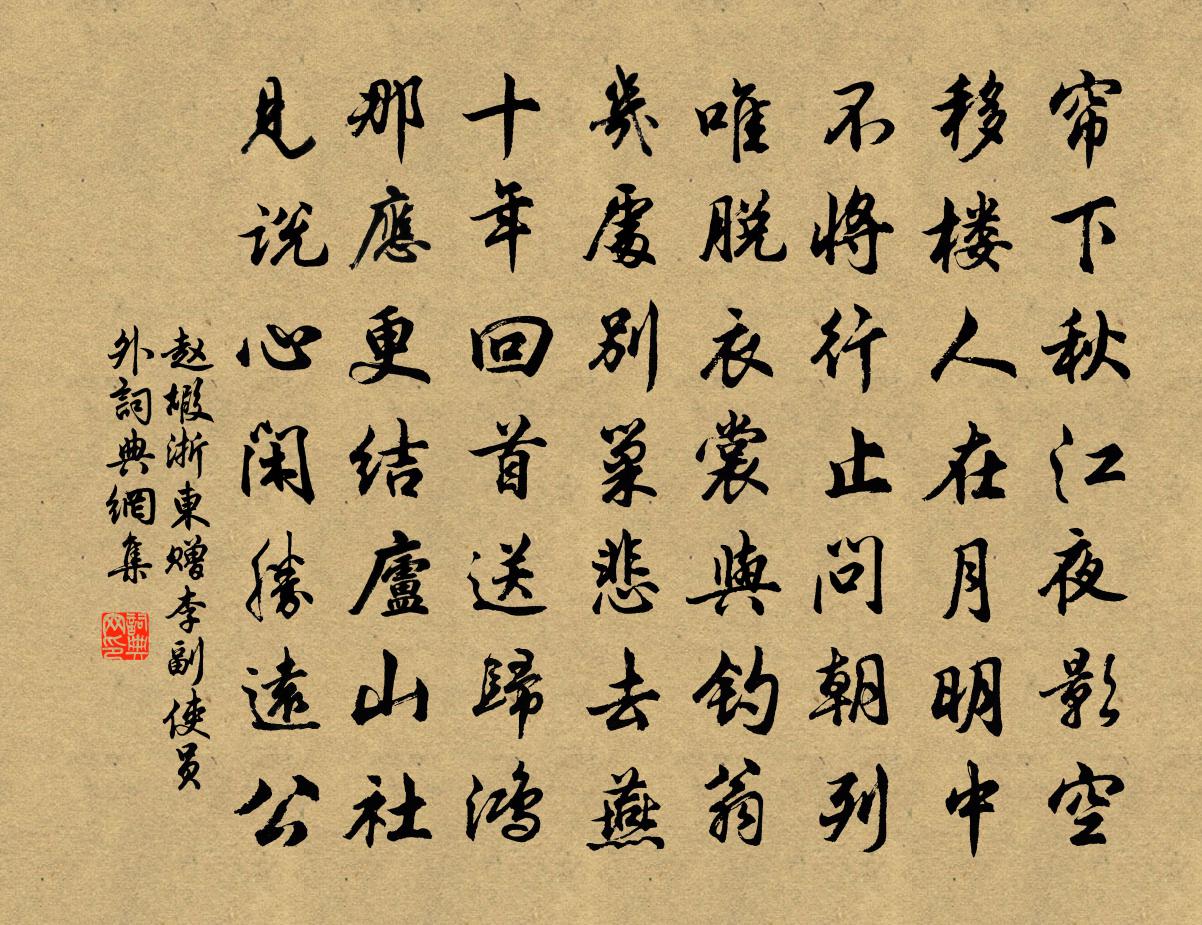 帘下秋江夜影空
移楼人在月明中
不将行止问朝列
唯脱衣裳与钓翁
幾處别巢悲去燕
十年回首送歸鸿
那應更结廬山社
見説心闲勝遠公
赵嘏浙東赠李副使员
外詞典網集
詞典網印